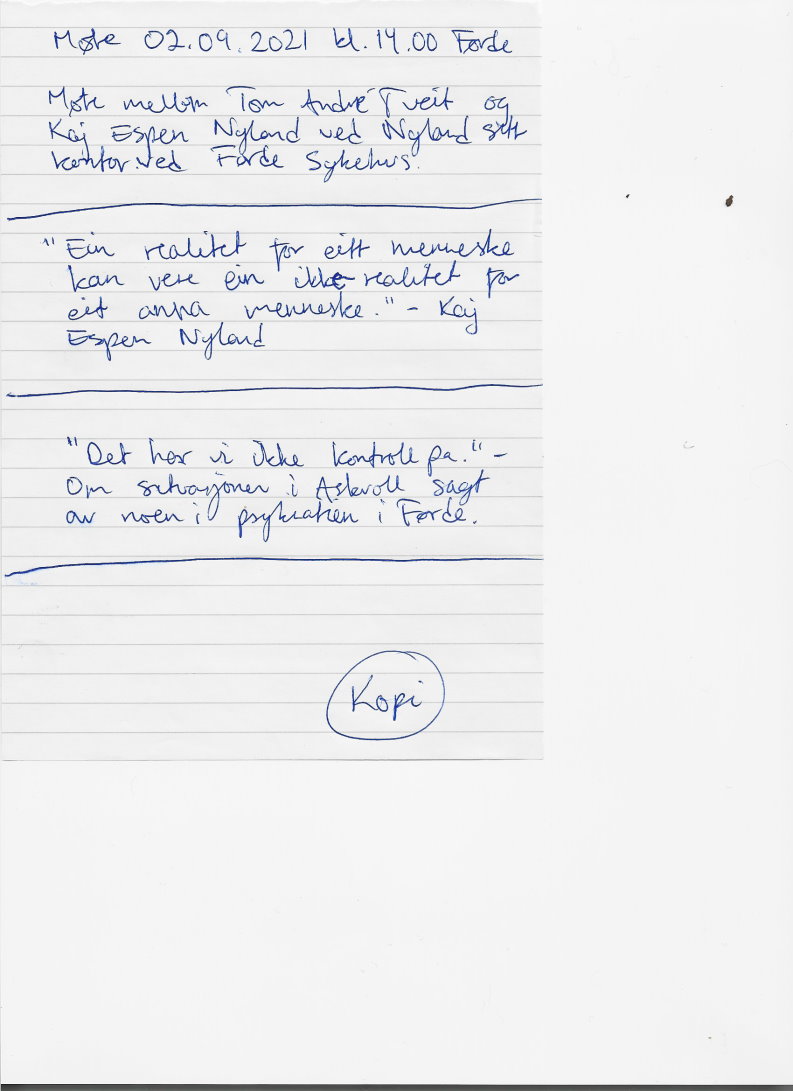 Møte 02.09.2021 kl. 14.00 Førde
Møte mellom Tom André Tveit og
Kaj Espen Nyland ved Nyland sitt
kontor ved Førde Sykehus.
"Ein realitet for eitt menneske
kan vere ein ikke-realitet for
eit anna menneske." - Kaj
Espen Nyland
"Det har vi ikke kontroll på." -
Om situasjonen i Askvoll sagt
av noen i psykiatrien i Førde.
Kopi